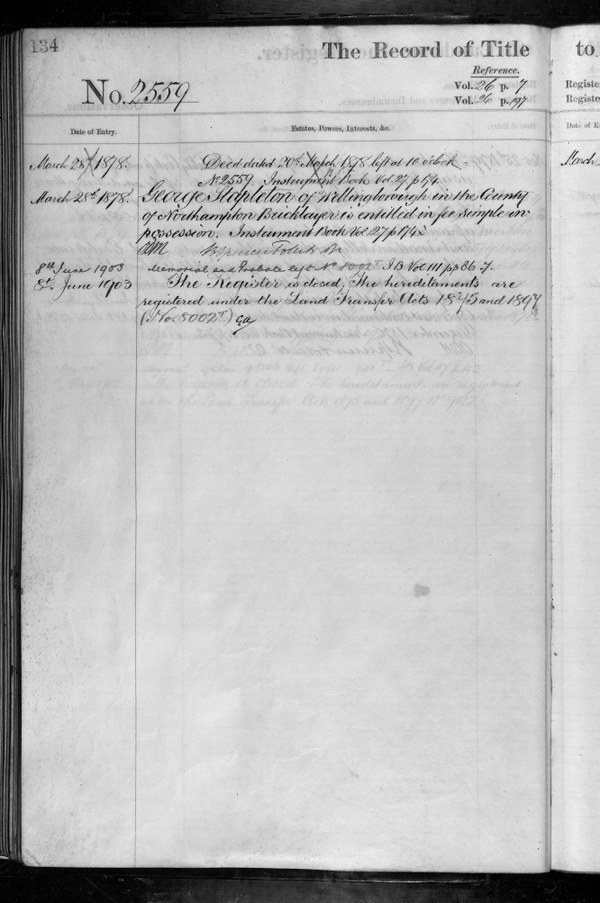 134
The Record of Title
to
Reference.
No. 2559
Vol. 26 p. 7
Vol. 26 p. 197
Registe
Registe
Date of Entry.
Estates, Powers, Interests, &c.
Date of E
March 28th 1878.
Deed dated 20th March 1878 left at 10 o'clock
March
No 2559 Instrument Book Vol 27 p 174
March 28th 1878.
George Stapleton of Wellingborough in the County
of Northampton Bricklayer is entitled in fee simple in
possession. Instrument Book Vol 27 p 174
8th June 1903
Memorial and Probate left No 8002T IB Vol 111 pp 36-7.
8th June 1903
The Register is closed, The hereditaments are
registered under the Land Transfer Acts 1875 and 1897
(No. 8002T)